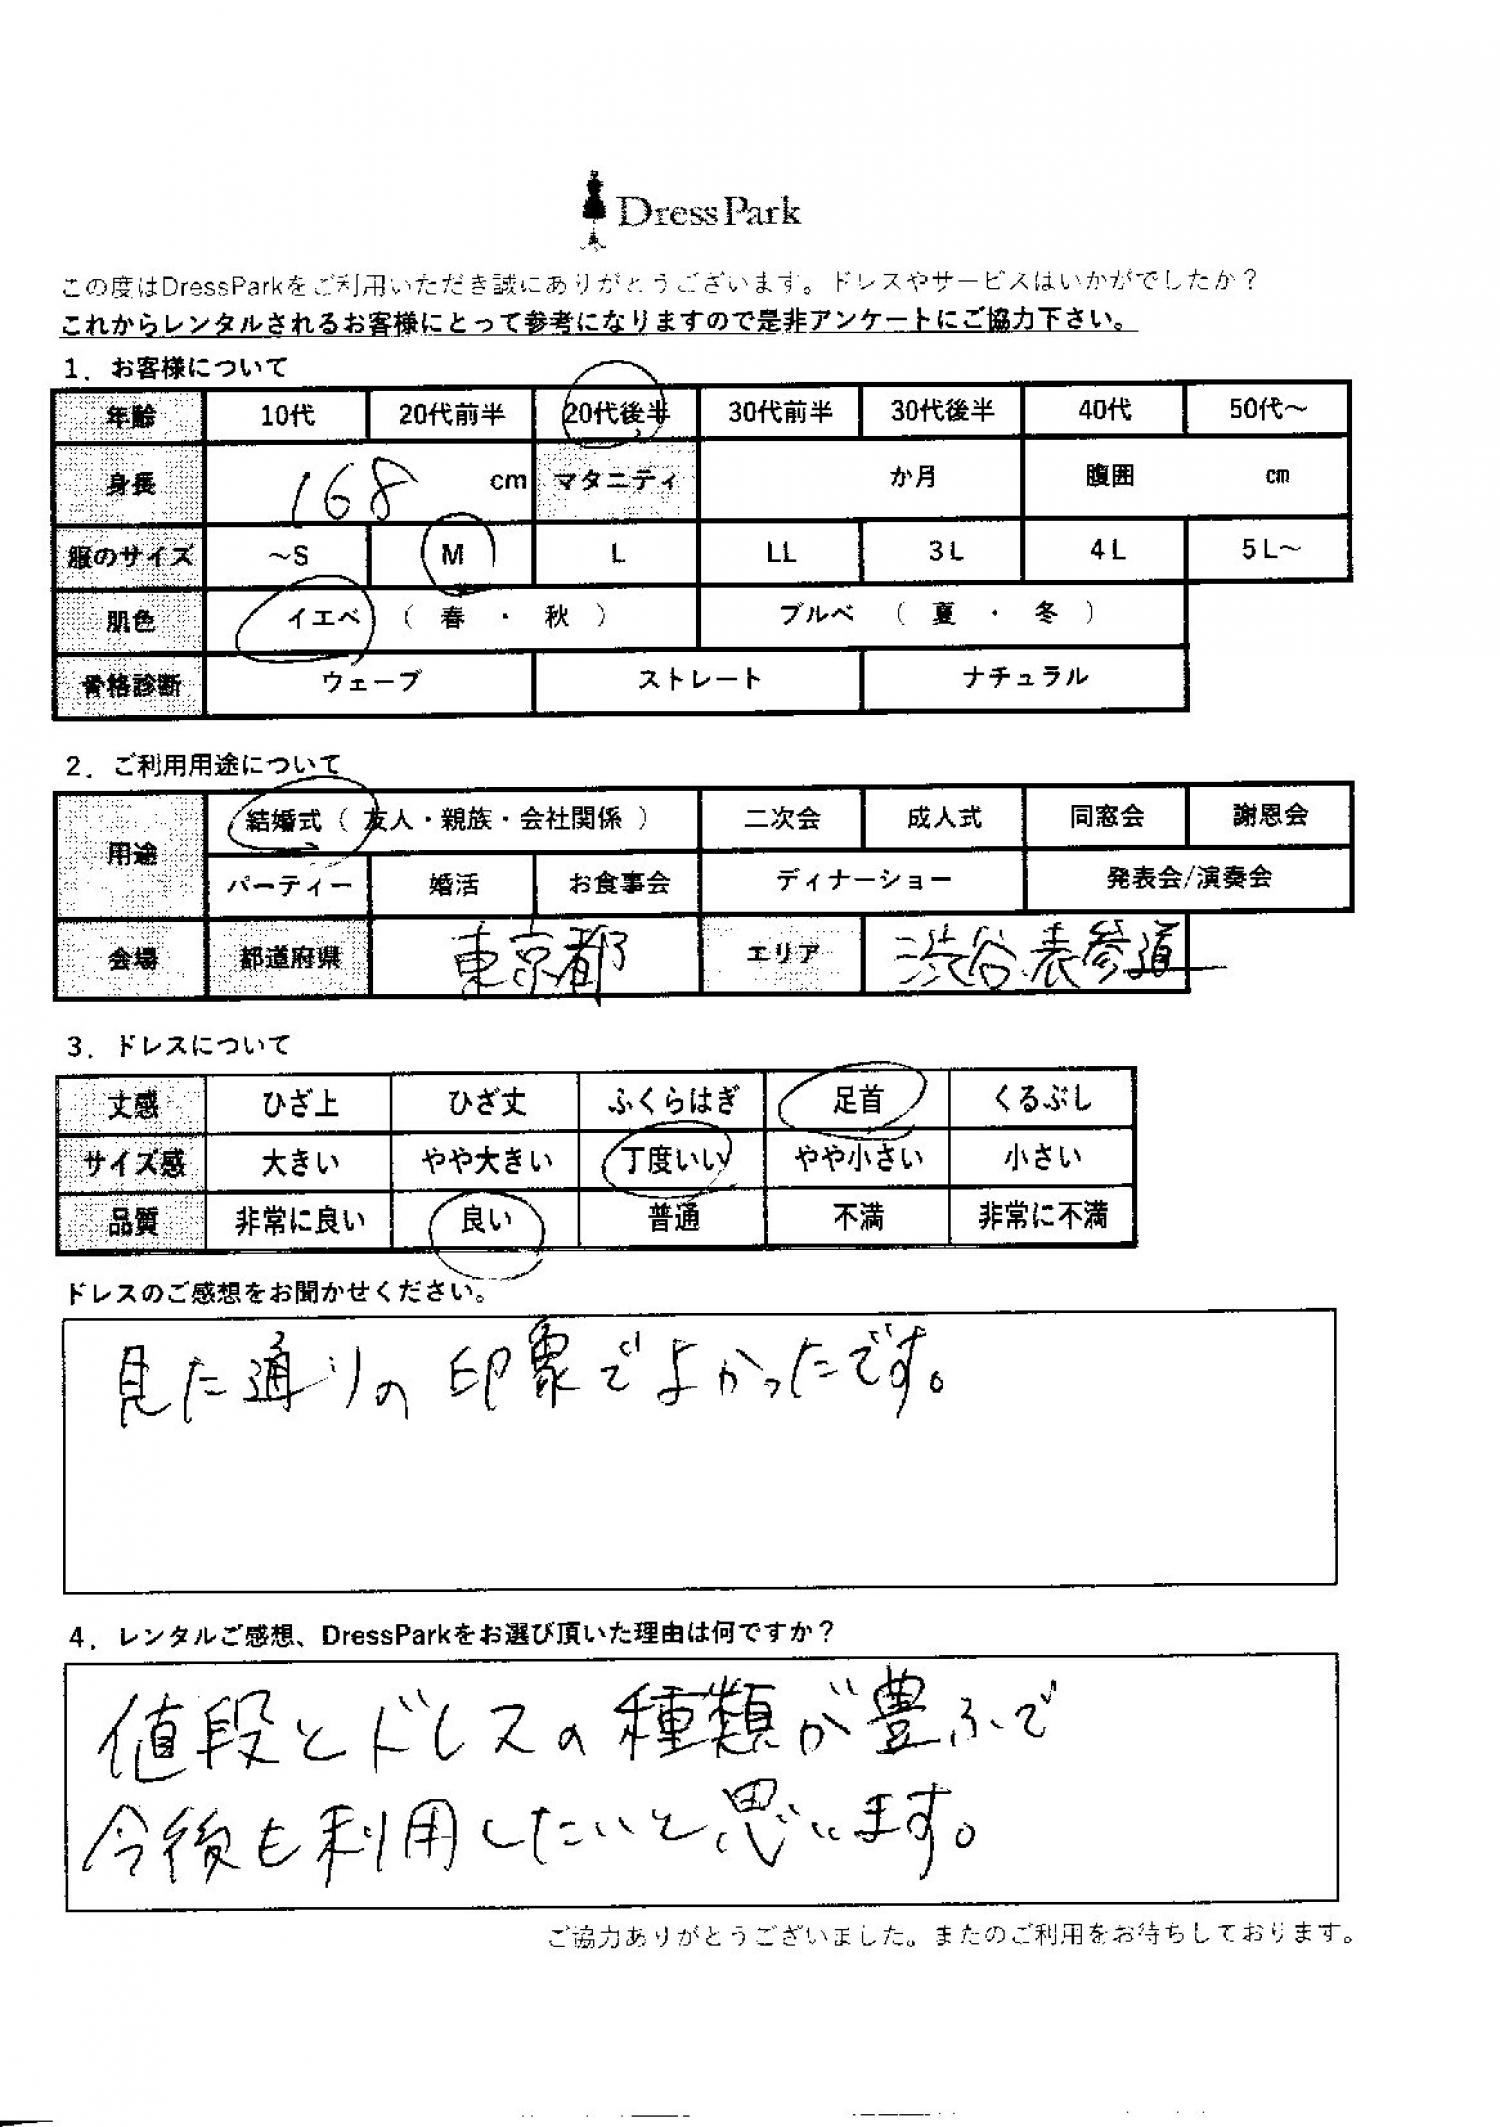 DressPark
この度はDressParkをご利用いただき誠にありがとうございます。ドレスやサービスはいかがでしたか？
これからレンタルされるお客様にとって参考になりますので是非アンケートにご協力下さい。
1．お客様について
年齢 10代 20代前半 20代後半 30代前半 30代後半 40代 50代～
身長 168 cm マタニティ か月 腹囲 cm
服のサイズ ～S M L LL 3L 4L 5L～
肌色 イエベ （ 春 ・ 秋 ） ブルベ （ 夏 ・ 冬 ）
骨格診断 ウェーブ ストレート ナチュラル
2．ご利用用途について
用途 結婚式（ 友人・親族・会社関係 ） 二次会 成人式 同窓会 謝恩会
パーティー 婚活 お食事会 ディナーショー 発表会/演奏会
会場 都道府県 東京都 エリア 渋谷、表参道
3．ドレスについて
丈感 ひざ上 ひざ丈 ふくらはぎ 足首 くるぶし
サイズ感 大きい やや大きい 丁度いい やや小さい 小さい
品質 非常に良い 良い 普通 不満 非常に不満
ドレスのご感想をお聞かせください。
見た通りの印象でよかったです。
4．レンタルご感想、DressParkをお選び頂いた理由は何ですか？
値段とドレスの種類が豊ふで
今後も利用したいと思います。
ご協力ありがとうございました。またのご利用をお待ちしております。